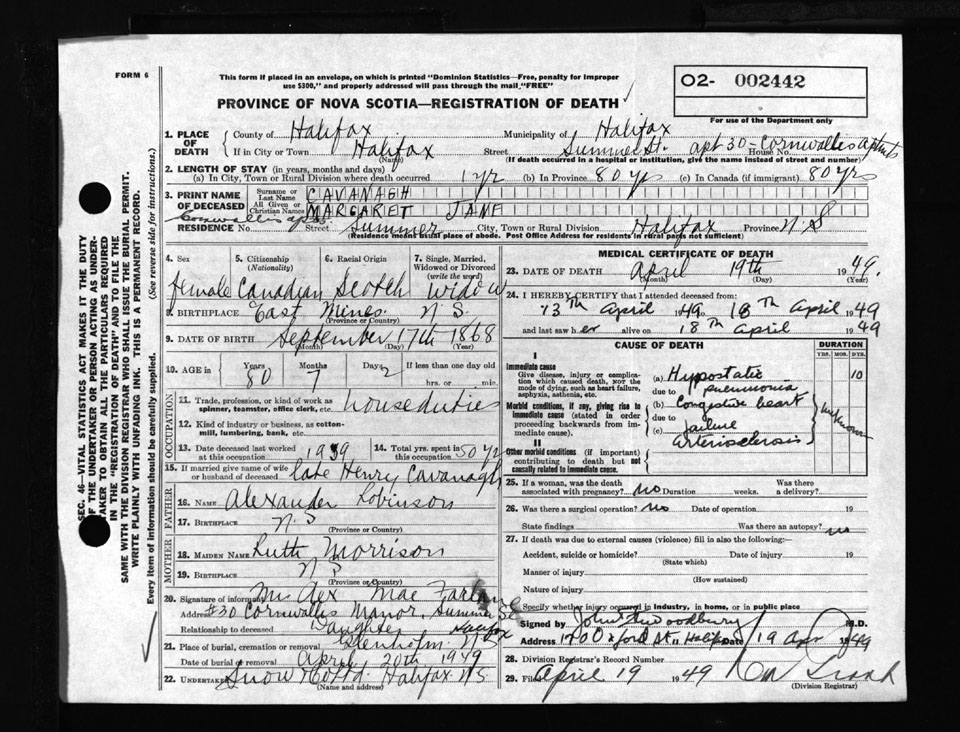 FORM 6
This form if placed in an envelope, on which is printed "Dominion Statistics—Free, penalty for improper
use $300," and properly addressed will pass through the mail "FREE"
O2- 002442
For use of the Department only
PROVINCE OF NOVA SCOTIA—REGISTRATION OF DEATH ✓
1. PLACE OF DEATH
County of Halifax Municipality of Halifax
If in City or Town Halifax Street Summer St. House No. apt 30 - Cornwallis Aptmts
(Name) (If death occurred in a hospital or institution, give the name instead of street and number)
2. LENGTH OF STAY (in years, months and days)
(a) In City, Town or Rural Division where death occurred 1 yr (b) In Province 80 yrs (c) In Canada (if immigrant) 80 yrs
3. PRINT NAME OF DECEASED
Surname or Last Name CAVANAGH
All Given or Christian Names MARGARET JANE
Cornwallis apts.
RESIDENCE No. Street Summer City, Town or Rural Division Halifax Province N S
(Residence means usual place of abode. Post Office Address for residents in rural parts not sufficient)
4. Sex female
5. Citizenship (Nationality) Canadian
6. Racial Origin Scotch
7. Single, Married, Widowed or Divorced (write the word) Widow
8. BIRTHPLACE East Mines N. S.
(Province or Country)
9. DATE OF BIRTH September 17th 1868
(Month) (Day) (Year)
10. AGE in Years 80 Months 7 Days 2 If less than one day old
hrs. or min.
OCCUPATION
11. Trade, profession, or kind of work as
spinner, teamster, office clerk, etc. house duties
12. Kind of industry or business, as cotton-
mill, lumbering, bank, etc.
13. Date deceased last worked at this occupation 1939
14. Total yrs. spent in this occupation 50 yr
15. If married give name of wife or husband of deceased late Henry Cavanagh
FATHER
16. NAME Alexander Robinson
17. BIRTHPLACE N. S
(Province or Country)
MOTHER
18. MAIDEN NAME Ruth Morrison
19. BIRTHPLACE N S
(Province or Country)
20. Signature of informant Mrs Alex Mac Farlane
Address #30 Cornwallis Manor, Summer St
Relationship to deceased Daughter Halifax
21. Place of burial, cremation or removal Glenholm N S
Date of burial or removal April 20th 1949
22. Undertaker Snow Co Ltd. Halifax N.S.
(Name and address)
MEDICAL CERTIFICATE OF DEATH
23. DATE OF DEATH April 19th 1949.
(Month) (Day) (Year)
24. I HEREBY CERTIFY that I attended deceased from:
13th April 1949 to 18th April 1949
and last saw her alive on 18th April 1949
CAUSE OF DEATH
DURATION
YRS. MOS. DYS.
I
Immediate cause
Give disease, injury or complica-
tion which caused death, not the
mode of dying, such as heart failure,
asphyxia, asthenia, etc.
(a) Hypostatic 10
due to pneumonia
Morbid conditions, if any, giving rise to
immediate cause (stated in order
proceeding backwards from im-
mediate cause).
(b) Congestive heart
due to failure unknown
(c) Arteriosclerosis
II
Other morbid conditions (if important)
contributing to death but not
causally related to immediate cause.
25. If a woman, was the death Was there
associated with pregnancy? no Duration weeks. a delivery?
26. Was there a surgical operation? no Date of operation 19
State findings Was there an autopsy? no
27. If death was due to external causes (violence) fill in also the following:
Accident, suicide or homicide? Date of injury 19
(State which)
Manner of injury
(How sustained)
Nature of injury
Specify whether injury occurred in industry, in home, or in public place
Signed by Woodbury M.D.
Address 170 Oxford St., Halifax Date 19 Apr 1949
28. Division Registrar's Record Number
29. Filed April 19 1949
(Division Registrar)
SEC. 46—VITAL STATISTICS ACT MAKES IT THE DUTY
OF THE UNDERTAKER OR PERSON ACTING AS UNDER-
TAKER TO OBTAIN ALL THE PARTICULARS REQUIRED
IN THE "REGISTRATION OF DEATH" AND TO FILE THE
SAME WITH THE DIVISION REGISTRAR WHO SHALL ISSUE THE BURIAL PERMIT.
WRITE PLAINLY WITH UNFADING INK. THIS IS A PERMANENT RECORD.
Every item of information should be carefully supplied. (See reverse side for instructions.)